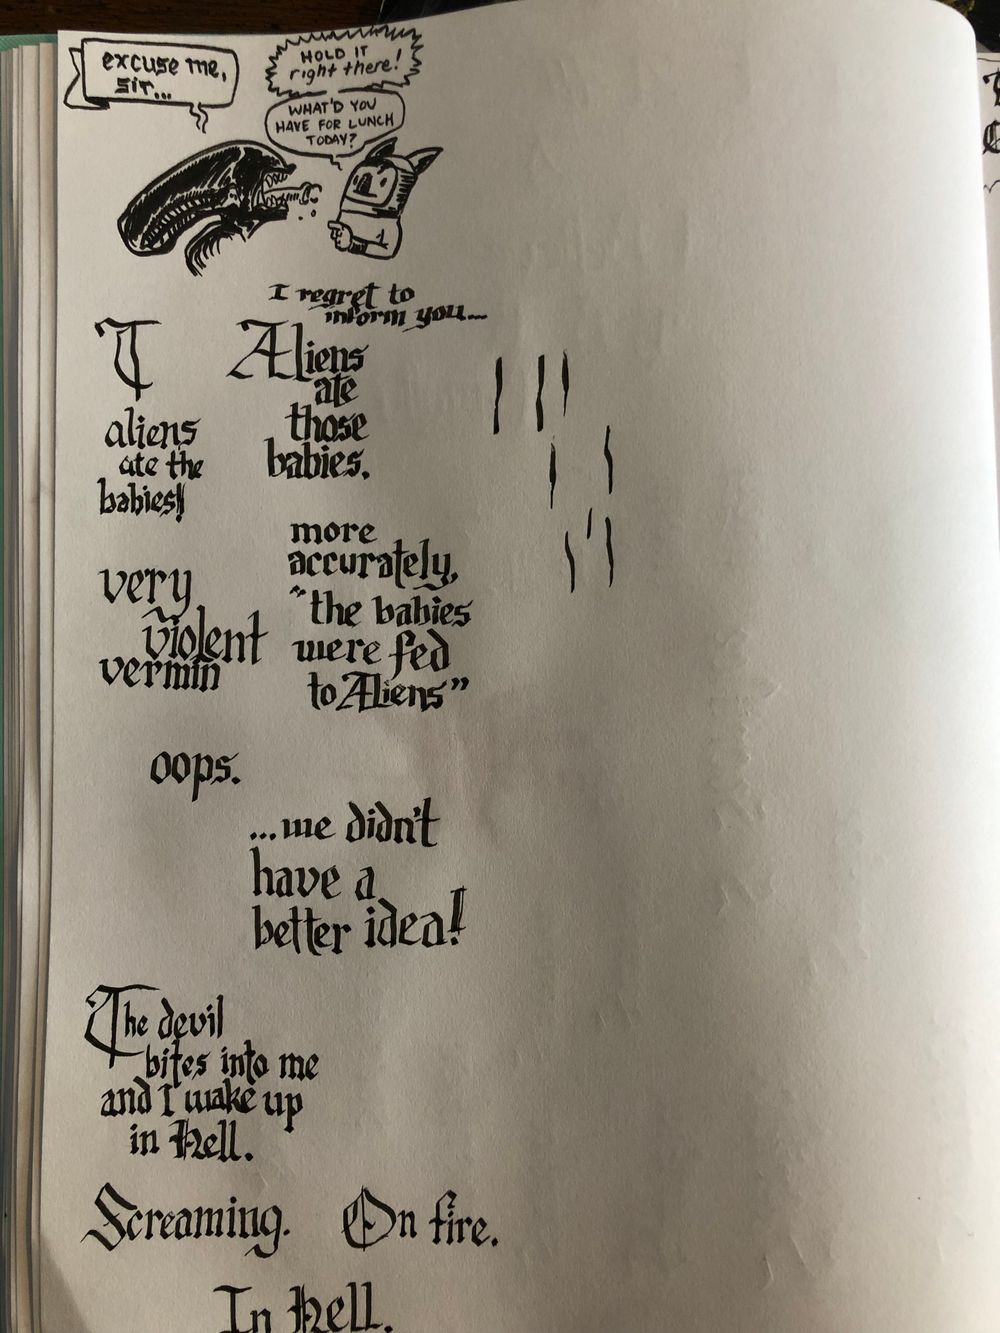 excuse me,
sir...
HOLD IT
right there!
WHAT'D YOU
HAVE FOR LUNCH
TODAY?
I regret to
inform you...
T
aliens
ate the
babies!
Aliens
ate
those
babies.
very
violent
vermin
more
accurately,
"the babies
were fed
to Aliens"
oops.
...we didn't
have a
better idea!
The devil
bites into me
and I wake up
in hell.
Screaming. On fire.
In hell.